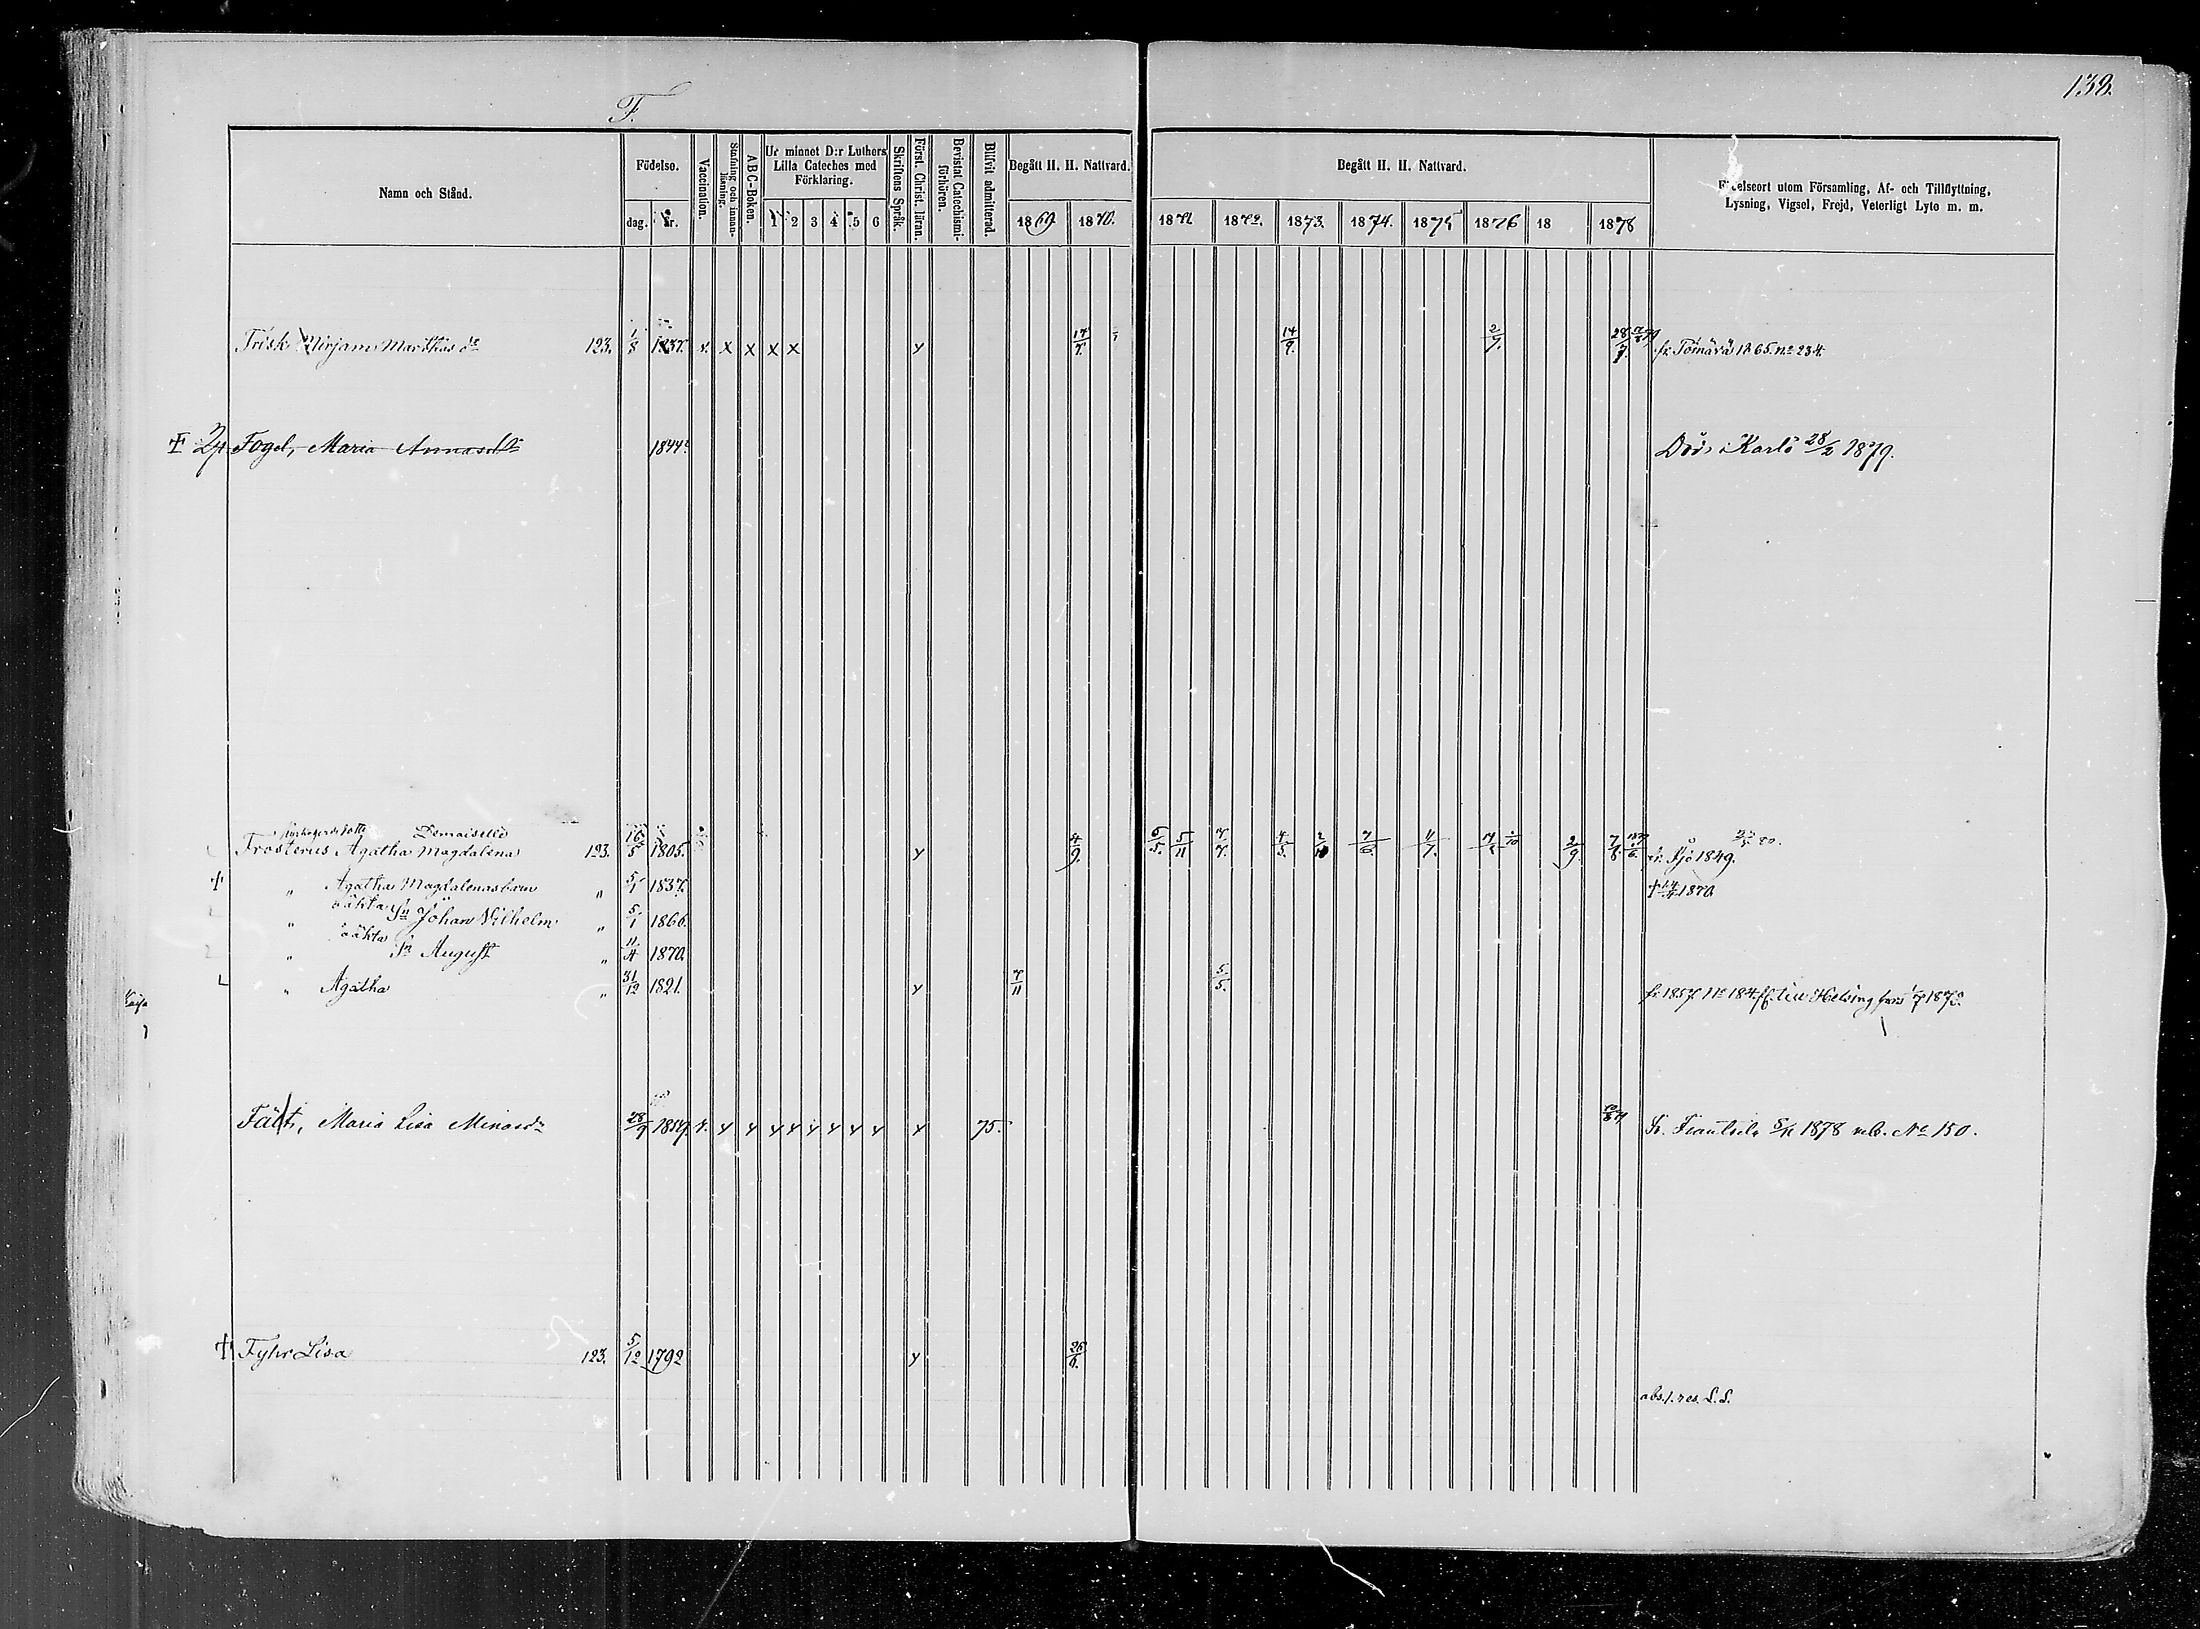 138.
F.
Namn och Stånd.
Födelse.
dag. år.
Vaccination.
Stafning och innanläsning.
ABC-Boken.
Ur minnet D:r Luthers Lilla Cateches med Förklaring.
1 2 3 4 5 6
Skriftens Språk.
Först. Christ. läran.
Bevistat Catechismiförhören.
Blifvit admitterad.
Begått H. H. Nattvard.
1869 1870.
Begått H. H. Nattvard.
1871 1872. 1873. 1874. 1875 1876 18 1878
Födelseort utom Församling, Af- och Tillflyttning,
Lysning, Vigsel, Frejd, Veterligt Lyte m. m.
Frisk Mirjam 123. 1/8 1837. v. x x x x y 17/7. 14/9. 2/9. 28/7. fr. 1865. no 234.
Fogel, Maria Annasdr 1844. Död i Karlö 28/2 1879.
Demoiselle
Frosterus Agatha Magdalena 123. 16/5 1805. y 4/9. 6/5. 5/11 7/7. 4/5. 2/10 7/6. 2/9. 7/8. fr. Ijo 1849.
" Agatha Magdalenas barn " 5/1 1837. † 1870
oäkta Sn Johan Vilhelm " 5/1 1866.
" oäkta Sn August " 11/4 1870.
" Agatha " 31/12 1821. y 7/11 5/5. fr. 1857. No 184. till Helsingfors
Fält, Maria Lisa Minasdr 28/9 v. y y y y y y y y y 75. fr. Frantsila 1878 No 150.
† Fyhr Lisa 123. 5/12 1792 y 26/6.
abs. l. res. S. S.